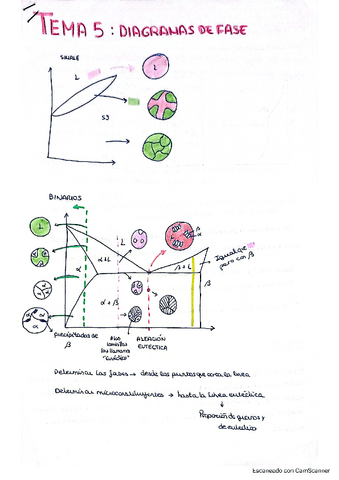 TEMA 5: DIAGRAMAS DE FASE
SIMPLE
L
L
SS
BINARIOS
L
L
α+L
α
β+L
β
α
α+β
α
β
Igual que
pero con β
precipitados de
β
ALEACIÓN
EUTÉCTICA
Determinar las fases → desde los puntos que corta la línea
Determinar microconstituyentes → hasta la línea eutéctica
Proporción de granos y
de eutéctico
Escaneado con CamScanner